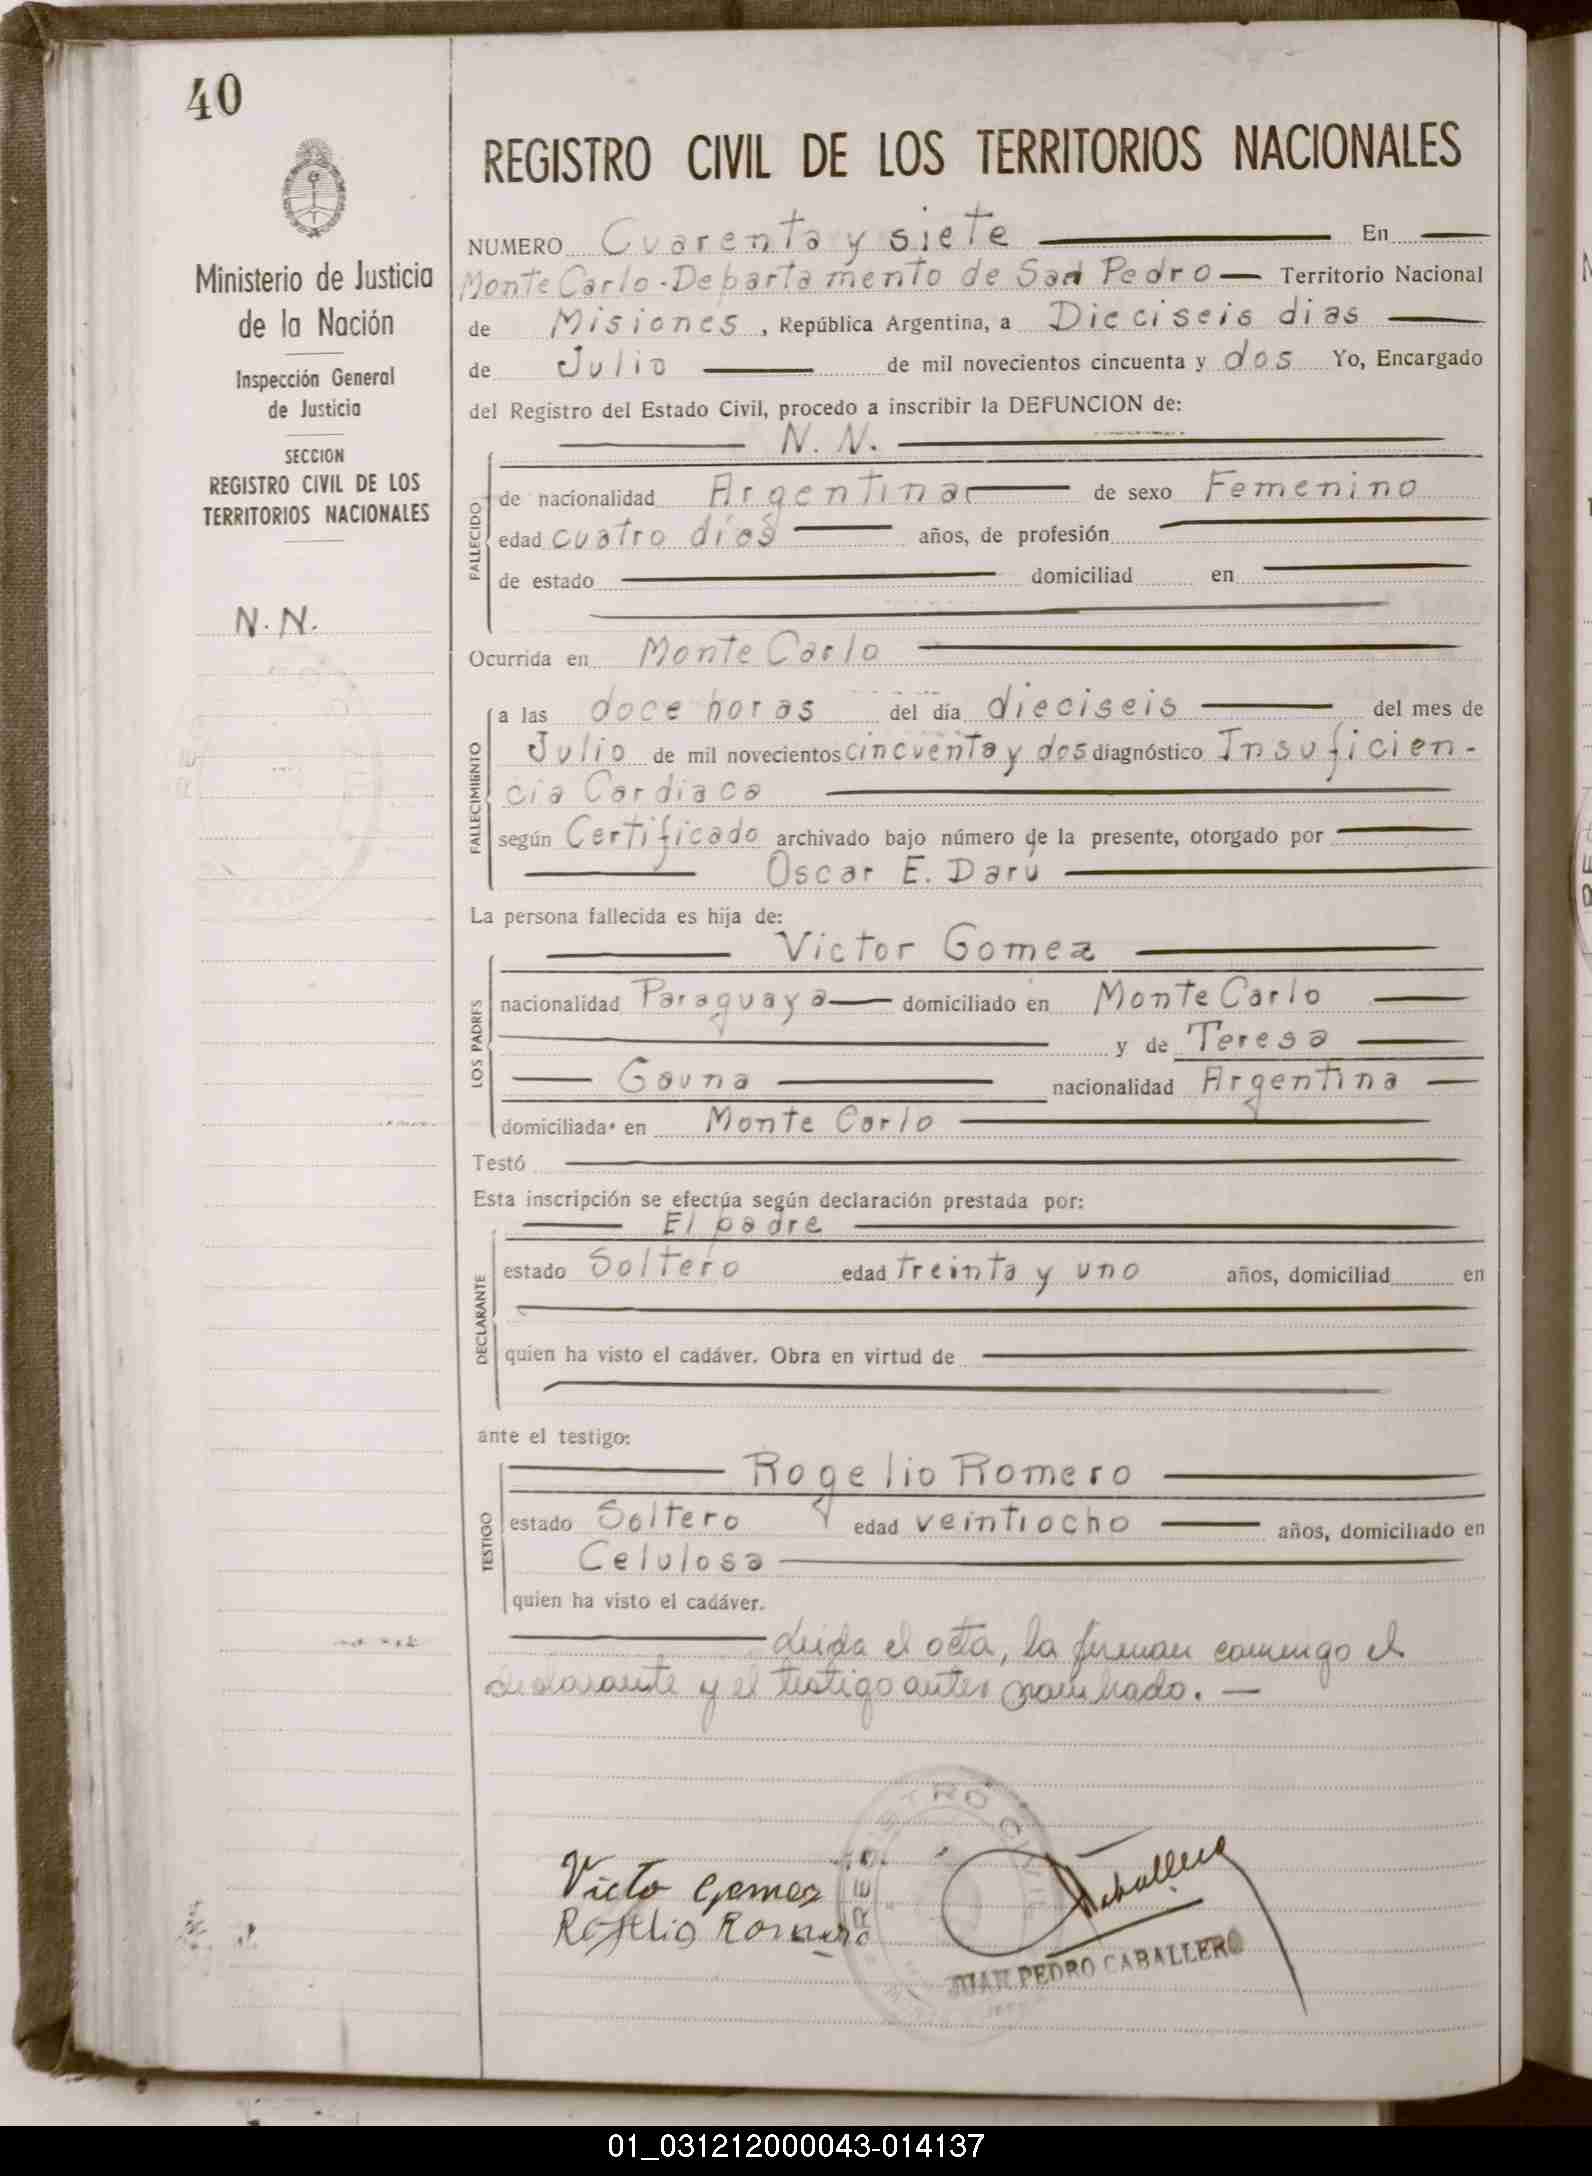 40
REGISTRO CIVIL DE LOS TERRITORIOS NACIONALES
Ministerio de Justicia
de la Nación
Inspección General
de Justicia
SECCION
REGISTRO CIVIL DE LOS
TERRITORIOS NACIONALES
N. N.
NUMERO Cuarenta y siete En
Monte Carlo - Departamento de San Pedro Territorio Nacional
de Misiones, República Argentina, a Dieciseis dias
de Julio de mil novecientos cincuenta y dos Yo, Encargado
del Registro del Estado Civil, procedo a inscribir la DEFUNCION de:
N. N.
FALLECIDO
de nacionalidad Argentina de sexo Femenino
edad cuatro dias años, de profesión
de estado domiciliad en
Ocurrida en Monte Carlo
FALLECIMIENTO
a las doce horas del día dieciseis del mes de
Julio de mil novecientos cincuenta y dos diagnóstico Insuficien-
cia Cardiaca
según Certificado archivado bajo número de la presente, otorgado por
Oscar E. Darú
La persona fallecida es hija de:
Victor Gomez
LOS PADRES
nacionalidad Paraguaya domiciliado en Monte Carlo
y de Teresa
Gauna nacionalidad Argentina
domiciliada en Monte Carlo
Testó
Esta inscripción se efectúa según declaración prestada por:
El padre
DECLARANTE
estado Soltero edad treinta y uno años, domiciliad en
quien ha visto el cadáver. Obra en virtud de
ante el testigo:
Rogelio Romero
TESTIGO
estado Soltero edad veintiocho años, domiciliado en
Celulosa
quien ha visto el cadáver.
Leida el acta, la firman conmigo el
declarante y el testigo antes nombrado.
Victo Gomez
Rogelio Romero
REGISTRO CIVIL
Caballero
JUAN PEDRO CABALLERO
01_031212000043-014137